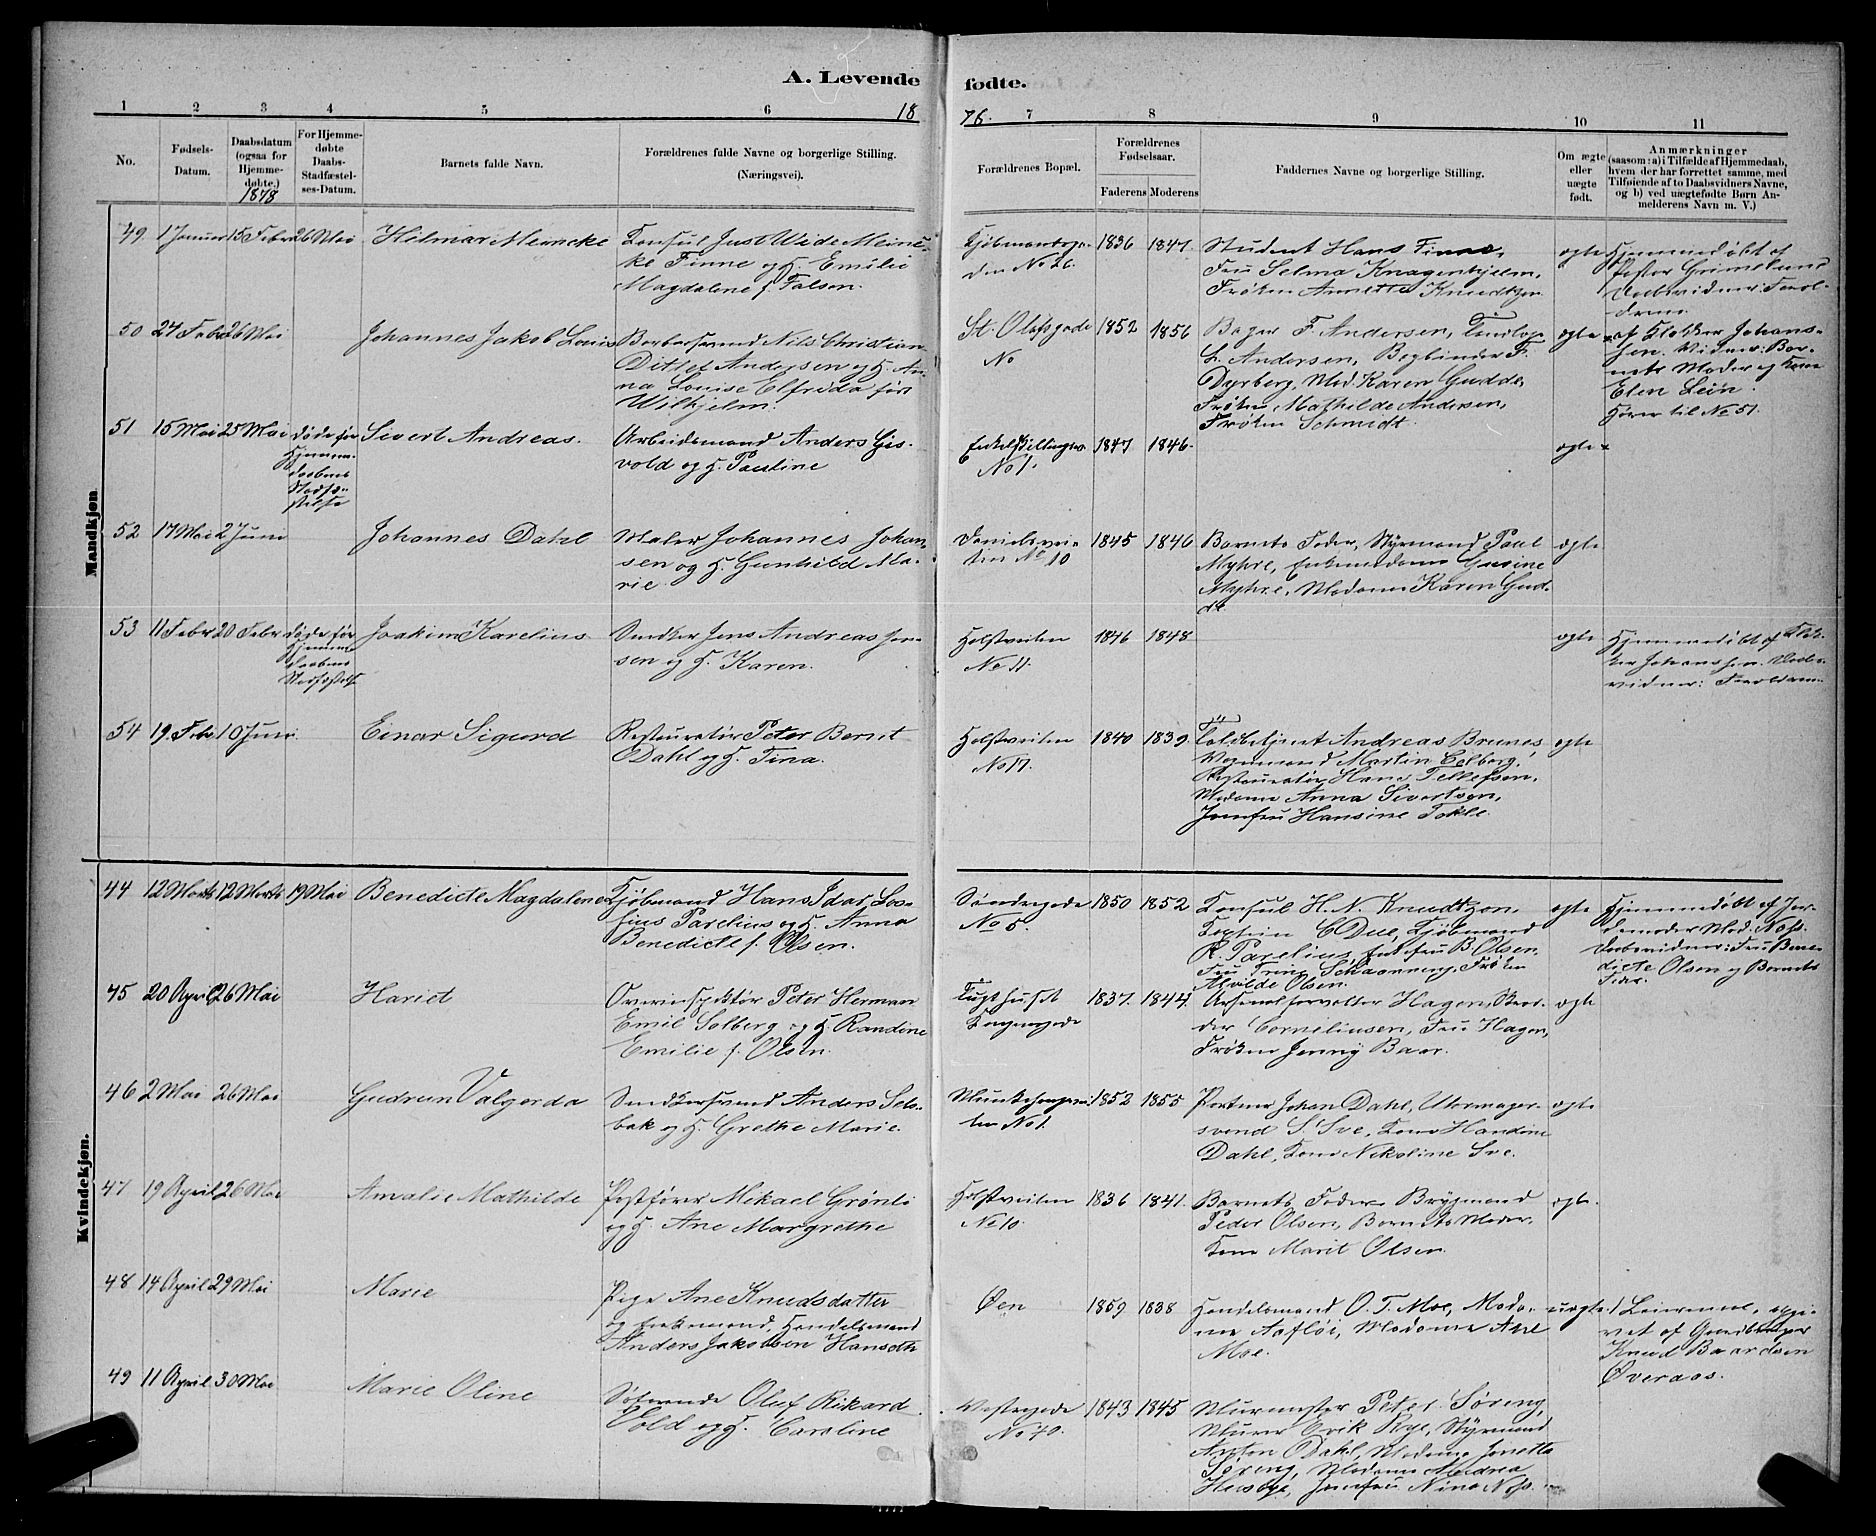 A. Levende fødte.
1 2 3 4 5 6 18 76. 7 8 9 10 11
No.
Fødsels-
Datum.
Daabsdatum
(ogsaa for
Hjemme-
døbte.)
1878
For Hjemme-
døbte
Daabs-
Stadfæstel-
ses-Datum.
Barnets fulde Navn.
Forældrenes fulde Navne og borgerlige Stilling.
(Næringsvei).
Forældrenes Bopæl.
Forældrenes
Fødselsaar.
Faderens Moderens
Faddernes Navne og borgerlige Stilling.
Om ægte
eller
uægte
født.
Anmærkninger
(saasom: a) i Tilfælde af Hjemmedaab,
hvem der har forrettet samme, med
Tilføiende af to Daabsvidners Navne,
og b) ved uægtefødte Børn An-
melderens Navn m. V.)
Mandkjøn.
49 1 Januar 15 Febr 26 Mai Hilmar Meincke
Konsul Just Wide Meinc-
ke Finne og H. Emilie
Magdalene f. Falsen.
Kjøbmandsga-
den No 26.
1836 1847.
Student Hans Finne,
Fru Selma Knagenhjelm,
Frøken Annette Knudtzon
ægte
Hjemmedøbt af
Pastor Grimelund
Daabsvidner: Foræl-
drene
50 24 Febr 26 Mai Johannes Jakob Louis
Barbersvend Nils Christian
Ditlef Andersen og H. An-
na Louise Elfrida født
Wilhjelm.
St. Olafsgade
No
1852 1856
Bager F. Andersen,
L. Andersen, Bogbinder F.
Dyrberg, Mad. Karen Gudde,
Frøken Mathilde Andersen,
Frøken Schmidt.
ægte
af Klokker Johans-
sen. Vidner: Bar-
nets Moder og Kone
Elen Lein.
Hører til No 51.
51 15 Mai 25 Mai døde før
Hjemme-
daabens
Stadfæ-
stelse
Sivert Andreas.
Arbeidsmand Anders Gis-
vold og H. Pauline
Enkeltskillingsv.
No 1.
1847 1846.
ægte
52 17 Mai 2 Juni Johannes Dahl
Maler Johannes Johan-
sen og H. Gunhild Ma-
rie
Danielsvei-
ten No 10
1845 1846
Barnets Fader, Styrmand Paul
Myhre, Enkemadame Gurine
Myhre, Madame Karen Gud-
de
ægte
53 11 Febr 20 Febr døde før
Hjemme-
daabens
Stadfæstelse
Joakim Karelius
Snedker Jens Andreas Jen-
sen og H. Karen.
Holstveiten
No 11.
1846 1848
ægte
Hjemmedøbt af Klok-
ker Johanssen. Daabs-
vidner: Forældrene
54 19. Feb 10 Juni Einar Sigurd
Restauratør Peter Bernt
Dahl og H. Tina.
Holstveiten
No 17.
1840 1839.
Toldbetjent Andreas Brunes,
Vognmand Martin Eelborg,
Restauratør Hans Tellefsen,
Madame Anna Sivertsen,
Jomfru Hansine Tokle.
ægte
Kvindekjøn.
44 12 Marts 12 Marts 19 Mai Benedicte Magdalene
Kjøbmand Hans Idar Los-
sius Parelius og H. Anna
Benedicte f. Olsen.
Søndregade
No 5.
1850 1852
Konsul H. N. Knudtzon,
Kaptein C Due, Kjøbmand
R. Parelius, Enkefru B. Olsen,
Fru Trine Schaanning, Frøken
Alvilde Olsen.
ægte
Hjemmedøbt af Jor-
demoder Mad. Næss.
Daabsvidner: Fru Bene-
dicte Olsen og Barnets
Fader.
45 20 April 26 Mai Hariet
Overinspektør Peter Herman
Emil Solberg og H. Randine
Emilie f. Olsen.
Tugthuset
Kongensgade
1837. 1844.
Arsenalforvalter Hagen,
Corneliussen, Fru Hagen,
Frøken Jenny Baar.
ægte
46 2 Mai 26 Mai Gudrun Valgerda
Snedkersvend Anders Sels-
bak og H. Grethe Marie.
Munkehaugvei-
ten No 1.
1852 1855
Portner Johan Dahl, Uhrmager-
svend S. Sve, Kone Handine
Dahl, Kone Nikoline Sve.
ægte
47 19 April 26 Mai Amalie Mathilde
Postfører Mikael Grønli
og H. Ane Margrethe
Holstveiten
No 10.
1836 1841.
Barnets Fader, Brygmand
Peder Olsen, Barnets Moder,
Kone Marit Olsen.
ægte.
48 14 April 29 Mai Marie
Pige Ane Knudsdatter
og Enkemand, Handelsmand
Anders Jakobsen Hanseth
Øen
1859 1838
Handelsmand O. T. Moe, Mada-
me Aafløi, Madame Ane
Moe.
uægte
1 Leiermaal, opgi-
vet af Gaardbruger
Knud Baardsen
Øveraas.
49 11 April 30 Mai Marie Oline
Søfarende Oluf Rikard
Vold og H. Caroline
Vestregade
No 40.
1843 1845
Murmester Peter Søreng,
Murer Erik Rye, Styrmand
Anton Dahl, Madame Jonetta
Søreng, Madame Andrea
Husbye, Jomfru Nina Næss.